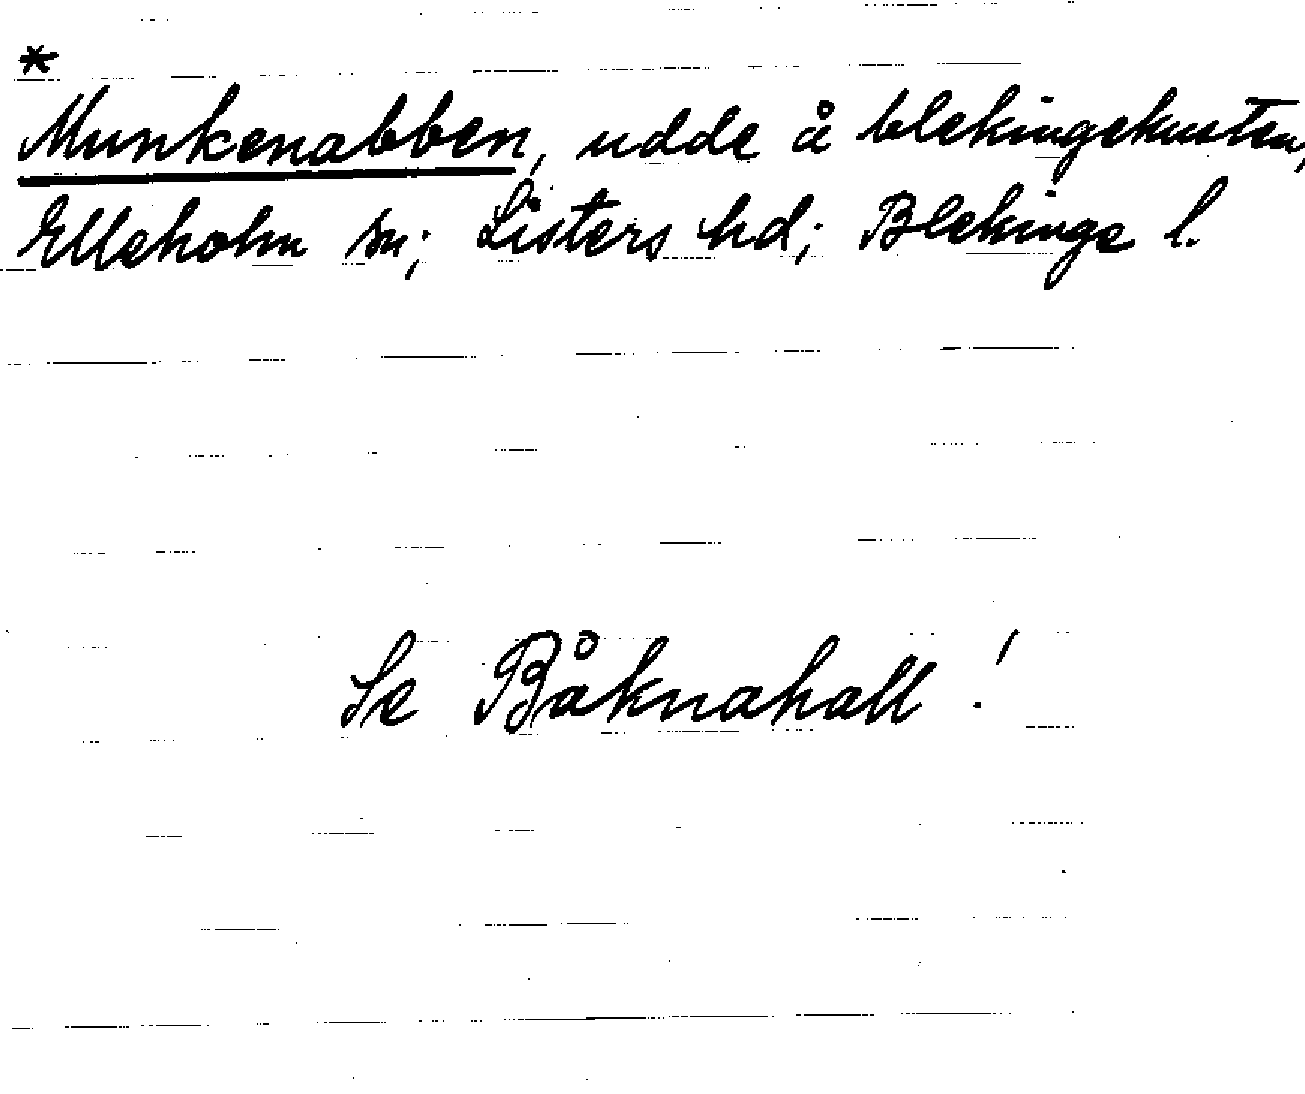 *
Munkenabben, udde å blekingekusten,
Elleholm sn; Listers hd; Blekinge l.
Se Båknahall!